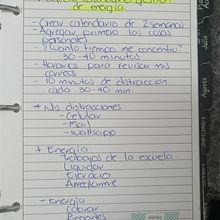 de energía
- Crear calendario de 2 semanas
- Agregar primero las cosas
personales
- ¿Cuánto tiempo me concentro?
30-40 minutos
- Horarios para revisar mis
correos
- 10 minutos de distracción
cada 30-40 min.
* No distracciones
- Celular
- Mail
- Whatsapp
+ Energía
Trabajos de la escuela
Liquidar
Ejercicio
Arreglarme
- Energía
Cobrar
Reportes